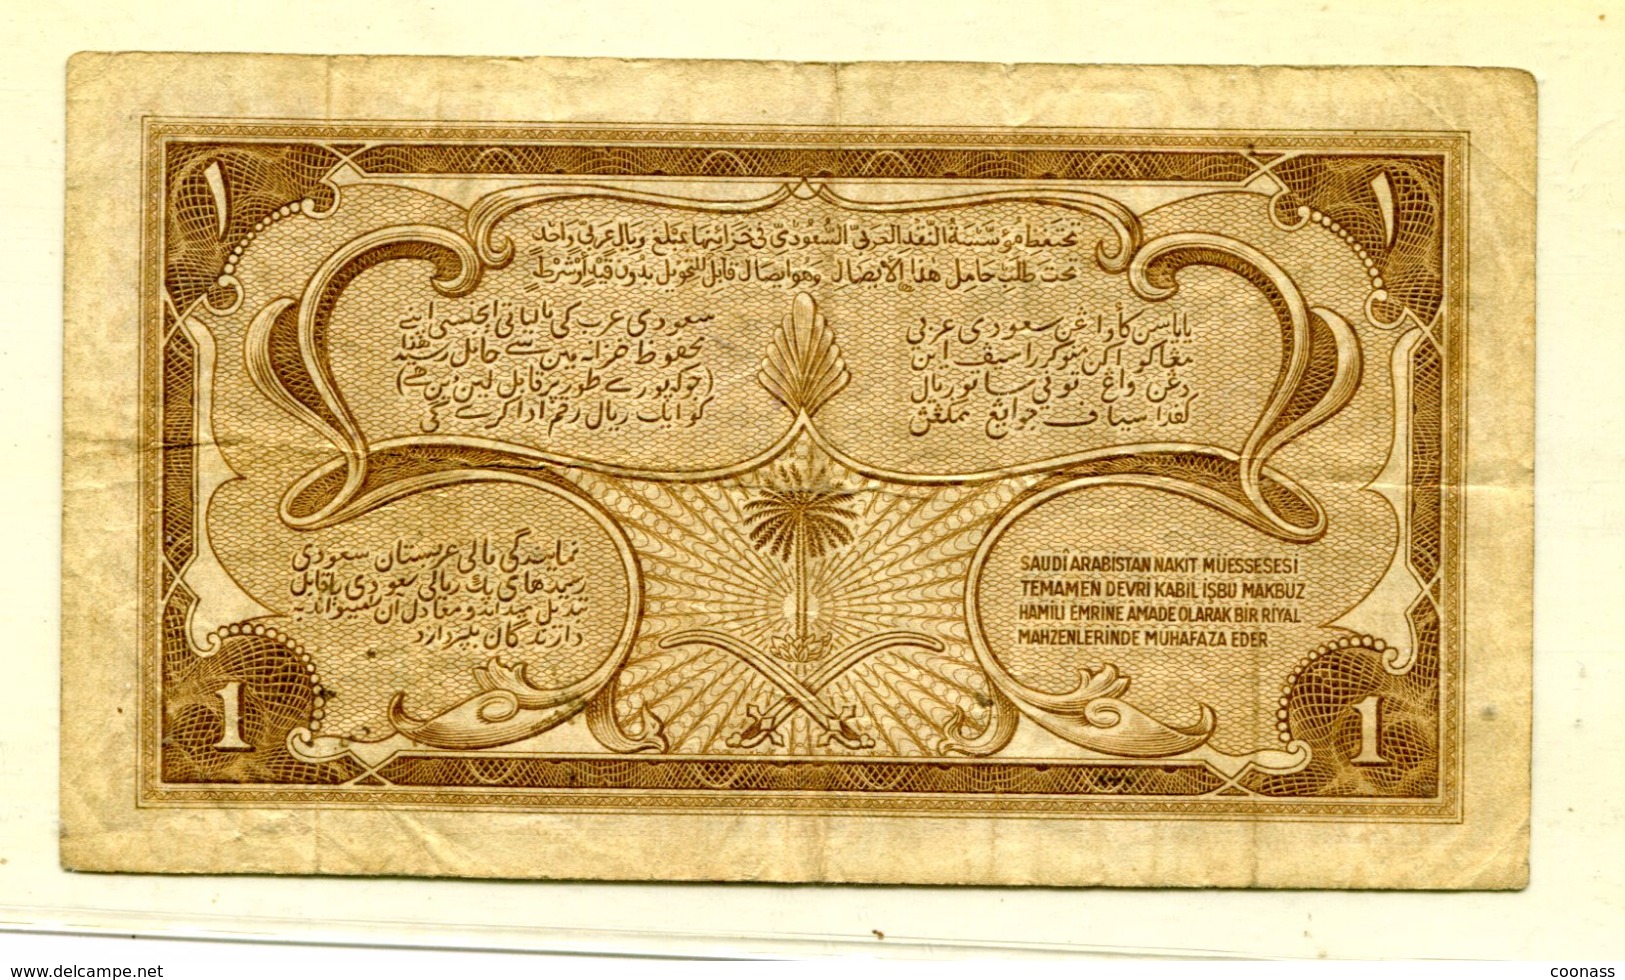 ١
١
تحتفظ مؤسسة النقد العربي السعودي في خزائنها بمبلغ ريال عربي واحد
تحت طلب حامل هذا الايصال وهو ايصال قابل للتحويل بدون قيد أو شرط
سعودي عرب کی مالیاتی ایجنسی اپنے
محفوظ خزانہ میں سے حامل رسید ھذا
(جو کہ پورے طور پر قابل لین دین ہے)
کو ایک ریال رقم ادا کرے گی
ياياسن كاواڠن سعودي عربي
دڠن واڠ توني ساتو ريال
كفدا سياف جوا يڠ
نمایندگی مالی عربستان سعودی
رسیدهای یك ریالی سعودی را قابل
تبدیل میداند و معادل آن
دارندگان بپردازد
SAUDÎ ARABİSTAN NAKİT MÜESSESESİ
TEMAMEN DEVRİ KABİL İŞBU MAKBUZ
HAMİLİ EMRİNE AMADE OLARAK BİR RİYAL
MAHZENLERİNDE MUHAFAZA EDER
1
1
www.delcampe.net
coonass